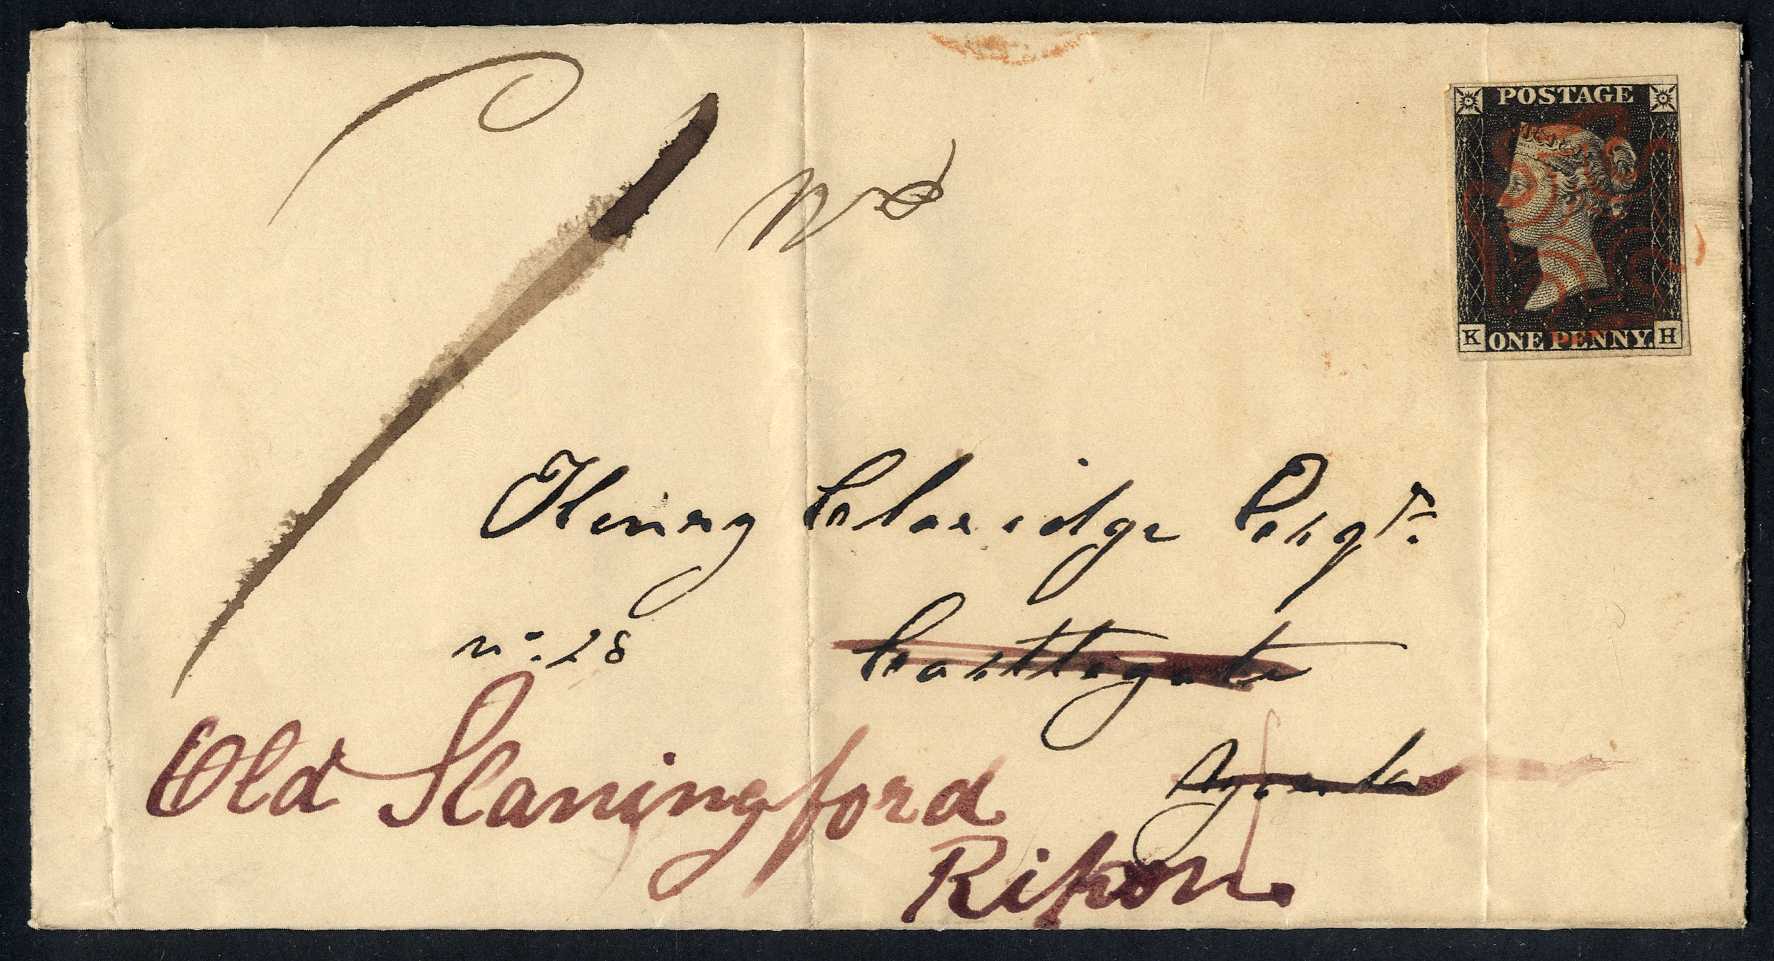 POSTAGE
K ONE PENNY. H
Henry Claridge Esqre.
no. 28
Castlegate
Old Slaningford
Ripon.